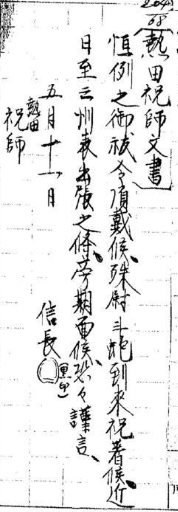 2045
68
熱田祝師文書
恒例之御祓令頂戴候、殊尉斗鮑到来祝着候、近
日至三州表出張之條、旁期面候、恐々謹言、
五月十一日
信長(黒印)
熱田
祝師